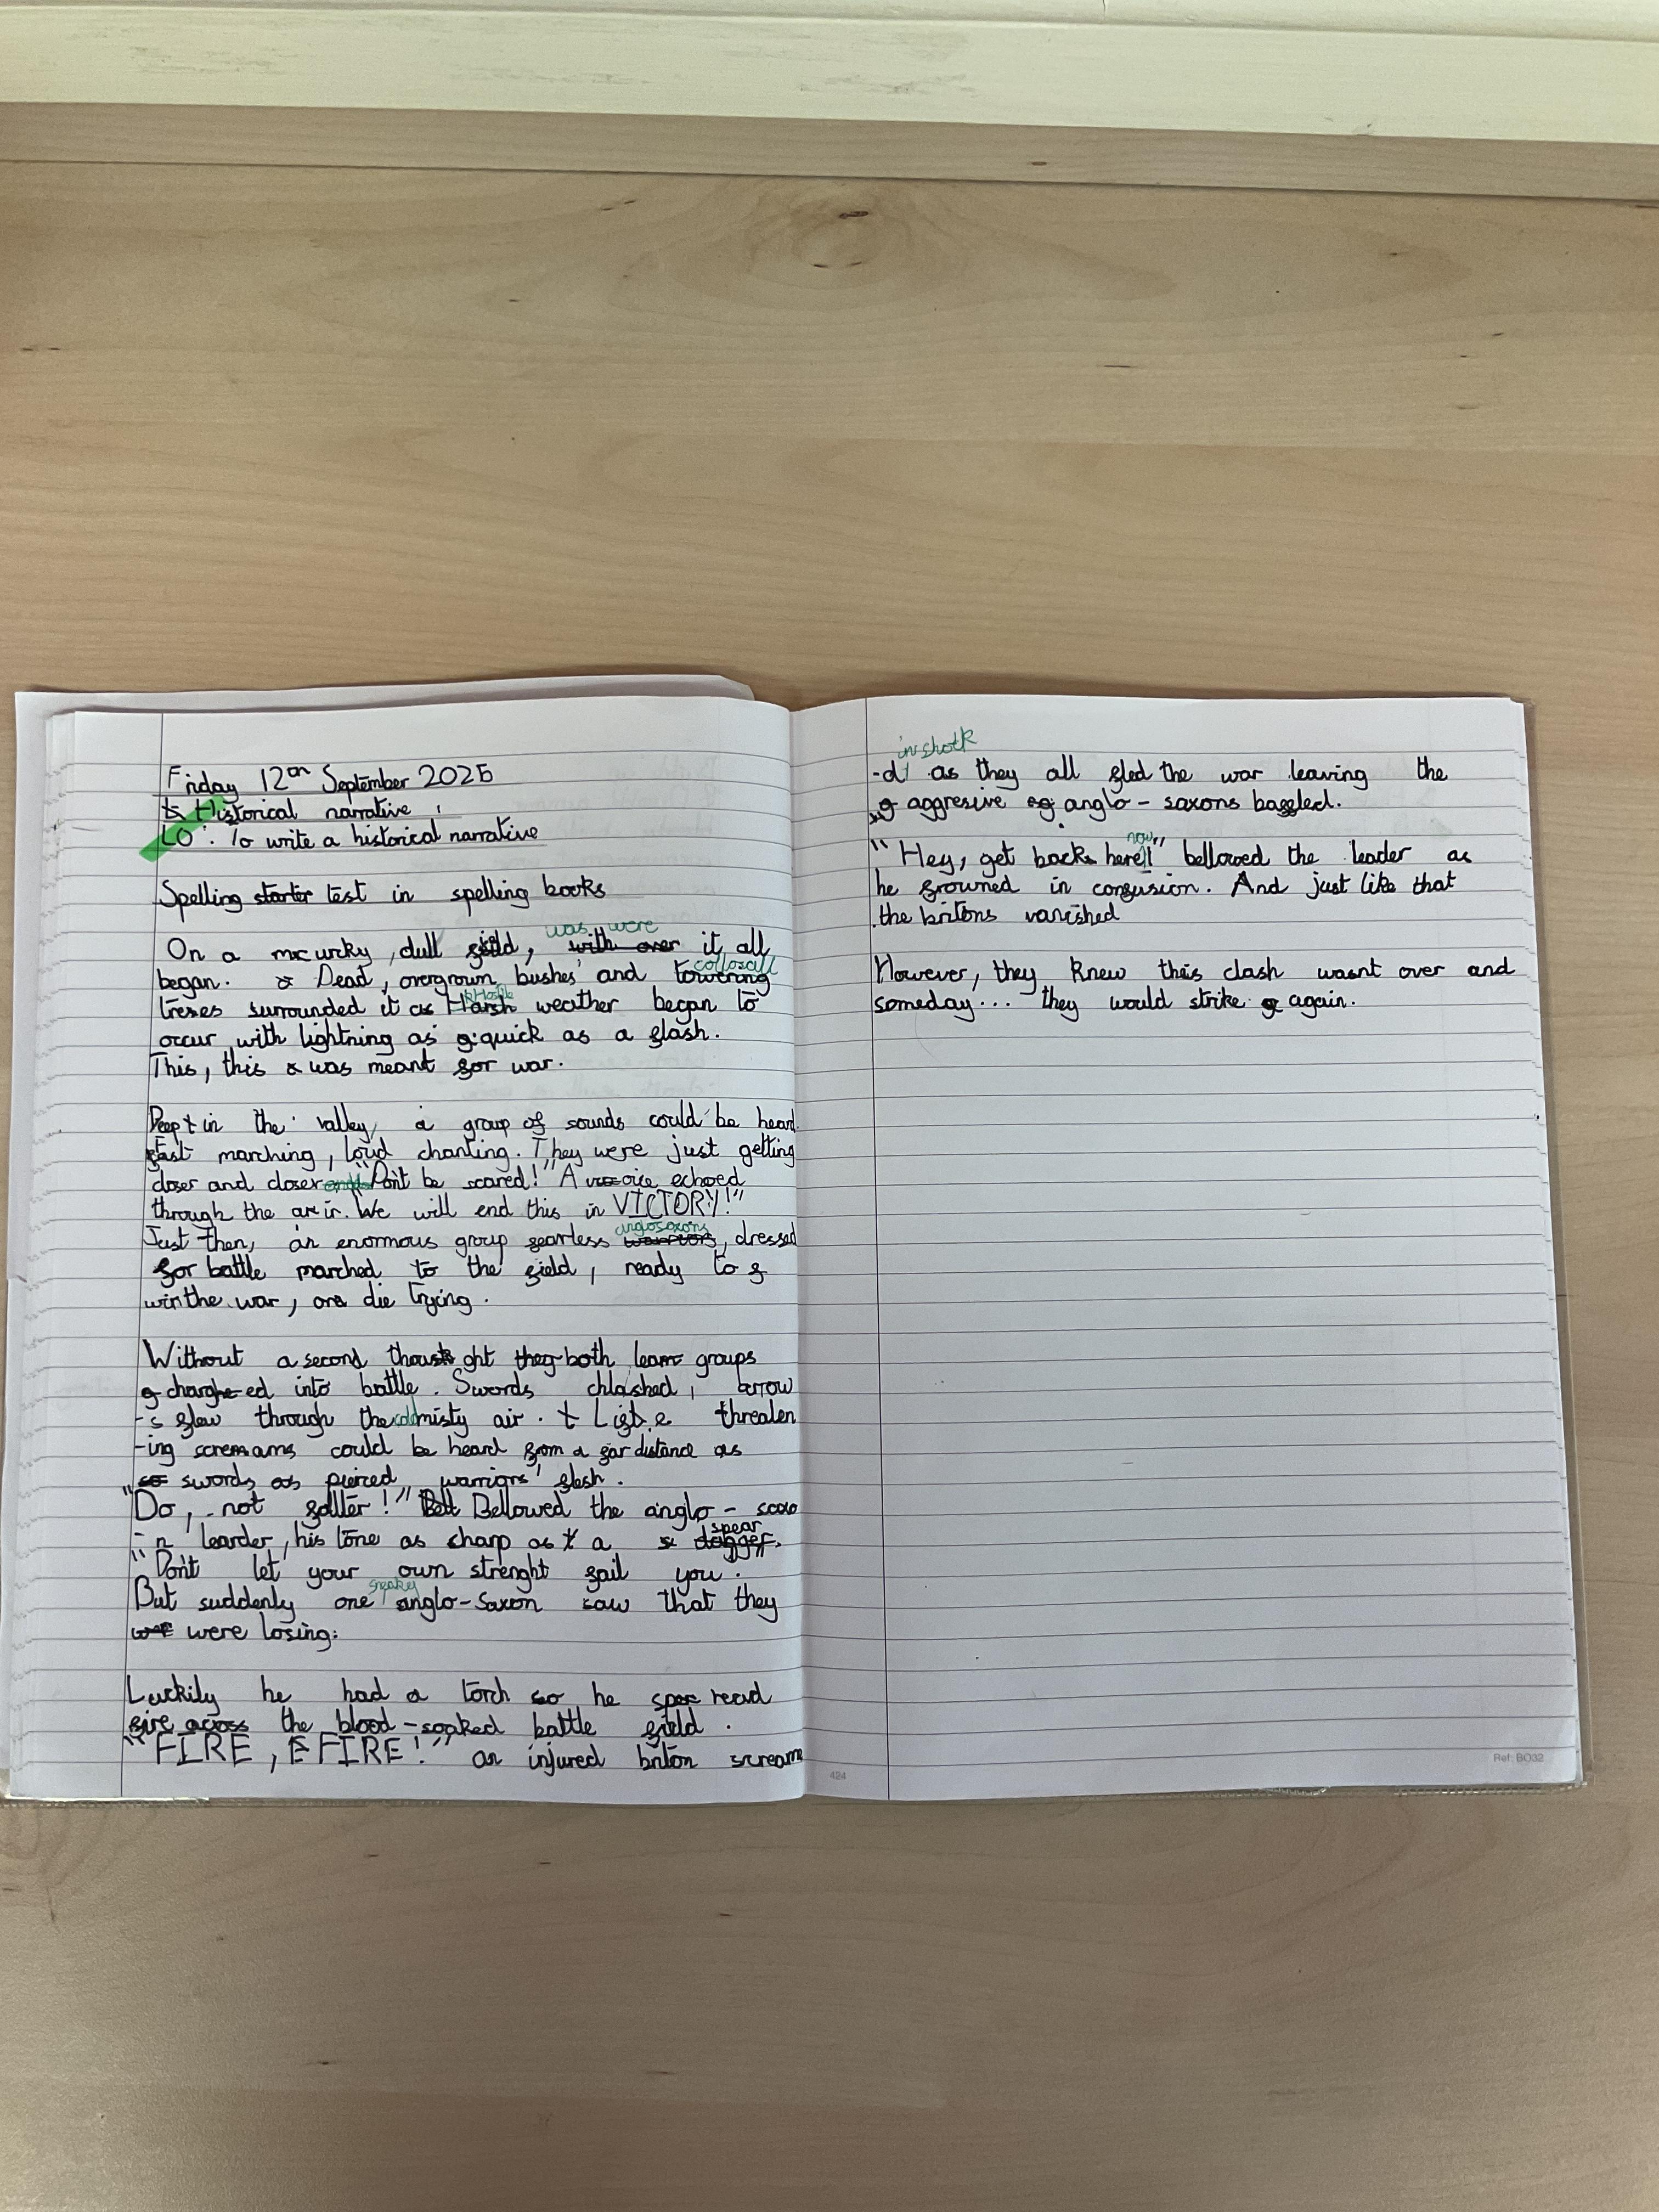 Friday 12th September 2025
Historical narrative
LO: To write a historical narrative
Spelling starter test in spelling books
was were
On a murky, dull field, with over it all
collosall
began. Dead, overgrown bushes and towering
Hostile
trees surrounded it as Harsh weather began to
occur with lightning as quick as a flash.
This, this was meant for war.
Deep in the valley, a group of sounds could be heard
fast marching, loud chanting. They were just getting
closer and closer "Don't be scared!" A voice echoed
through the air. We will end this in VICTORY!"
anglosaxons
Just then, an enormous group fearless warriors, dressed
for battle marched to the field, ready to
win the war, or die trying.
Without a second thought they both team groups
charged into battle. Swords chlashed, arrow
-s flew through the cold misty air. Life threaten
-ing screams could be heard from a far distance as
swords as pierced warriors' flesh.
"Do, not falter!" Bellowed the anglo - saxo
spear
- n learder, his tone as sharp as a dagger.
"Don't let your own strenght fail you.
sneaky
But suddenly one anglo-Saxon saw that they
were losing.
Luckily he had a torch so he spread
fire across the blood-soaked battle field.
"FIRE, FIRE!" an injured briton scream
in shock
-d as they all fled the war leaving the
aggresive anglo - saxons baffled.
now
"Hey, get back here!" bellowed the leader as
he frowned in confusion. And just like that
the britons vanished
However, they knew this clash wasnt over and
someday... they would strike again.
424
Ref: BO32